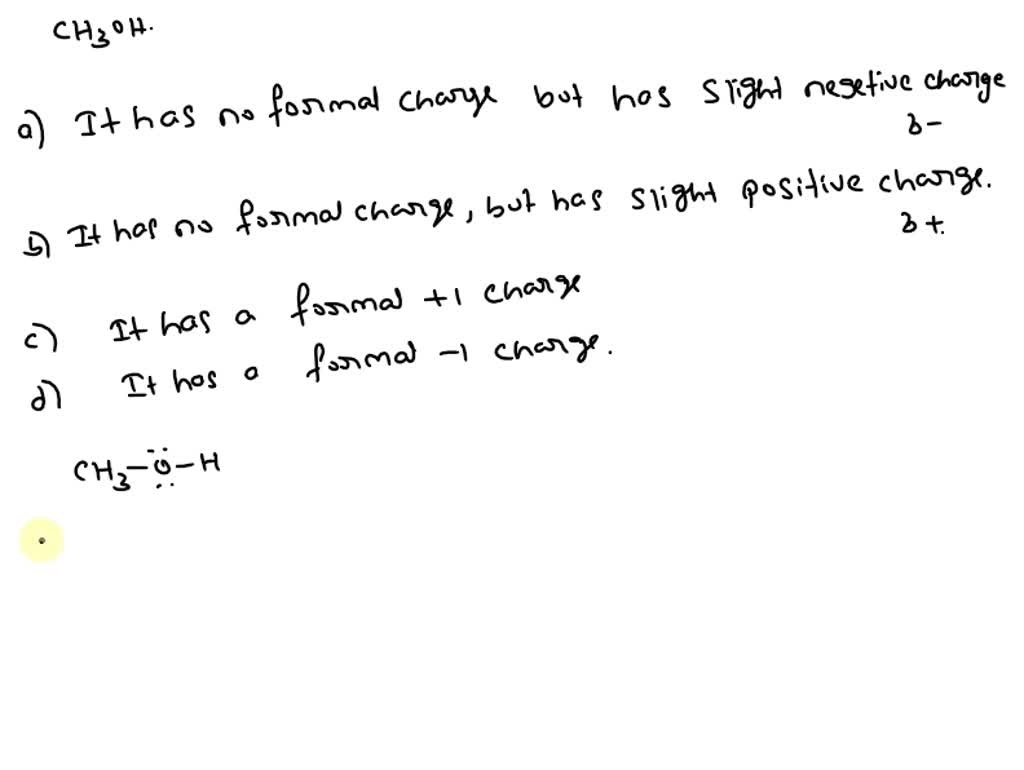 CH3OH.
a) It has no formal charge but has slight negetive charge
δ-
b) It has no formal charge, but has slight positive charge.
δ+.
c) It has a formal +1 charge
d) It has a formal -1 charge.
CH3-Ö-H